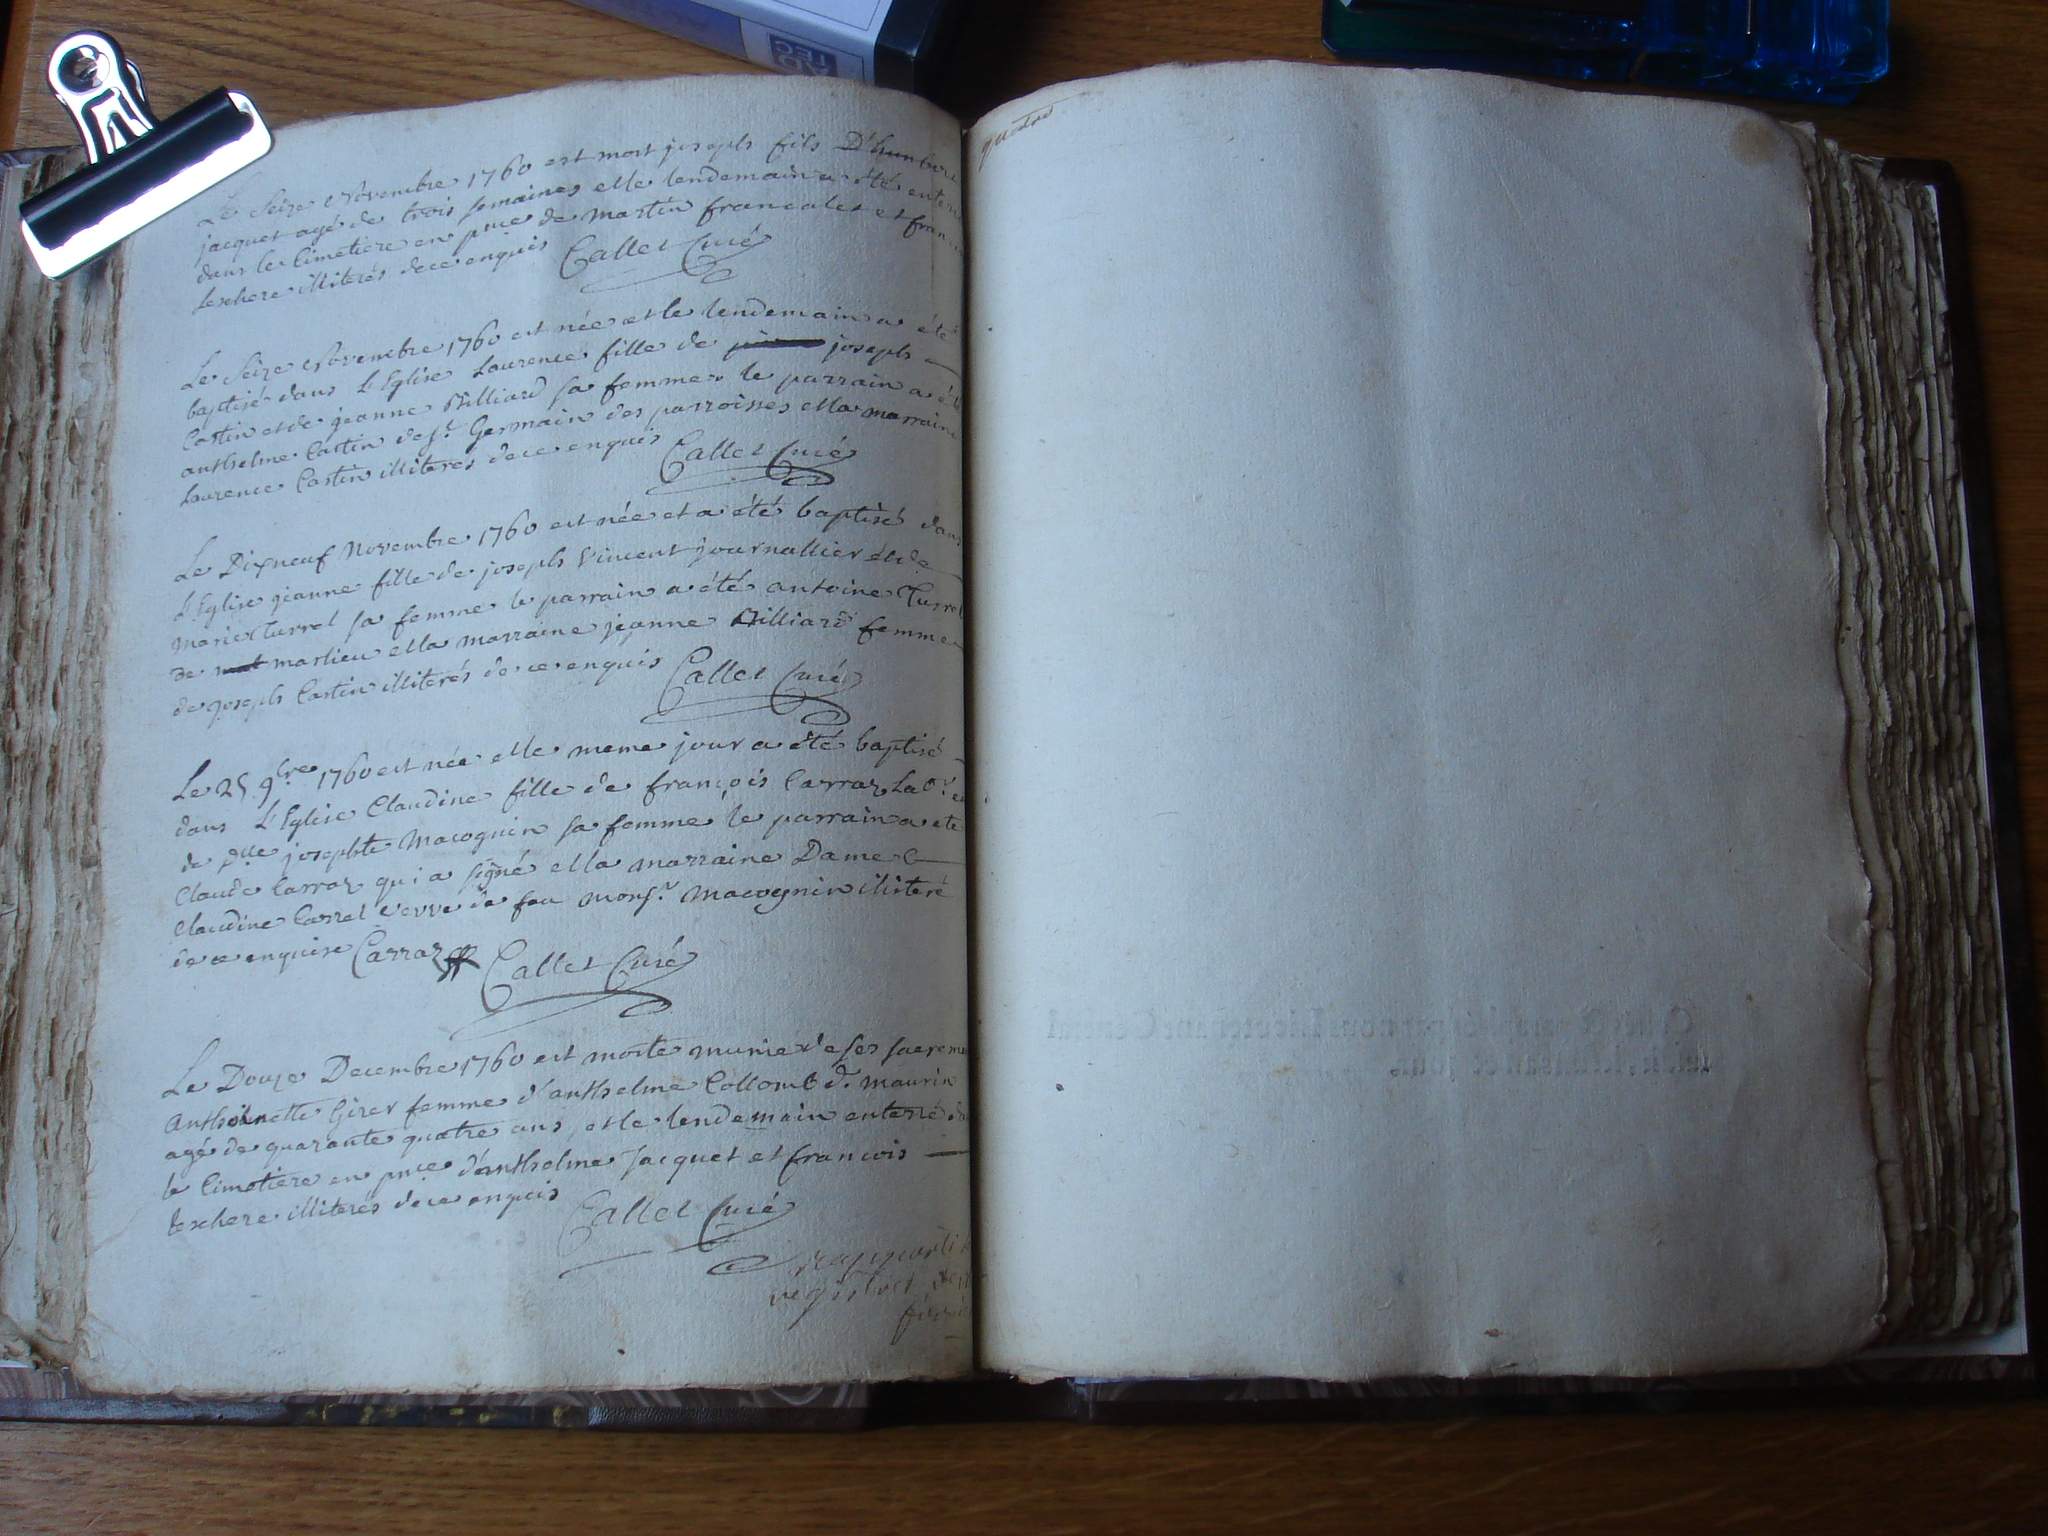 Le Seize Novembre 1760 est mort joseph fils D'humbert
jacquet agé de trois semaines et le lendemain a été enterré
dans le Cimetiere en pnce de martin francalet et fran
leschere illiterés de ce enquis Callet Curé
Le Seize Novembre 1760 est née et le lendemain a été
baptisé dans L'Eglise Laurence fille de joseph
Castin et de jeanne Billiard sa femme le parrain a été
anthelme Castin de st. Germain des parroisses et la marraine
Laurence Castin illiterés de ce enquis Callet Curé
Le Dixneuf Novembre 1760 est née et a été baptisé dans
L'Eglise jeanne fille de joseph Vincent journallier et de
marie Turrel sa femme le parrain a été antoine Turrel
de marlieu et la marraine jeanne Billiard femme
de joseph Castin illiterés de ce enquis Callet Curé
Le 25 9bre 1760 est née et le meme jour a été baptisé
dans L'Eglise Claudine fille de françois Carraz Labr. et
de dlle josephte Macognin sa femme le parrain a ete
Claude Carraz qui a signé et la marraine Dame
Claudine Carrel vevve de feu monsr. Macognin illiteré
de ce enquise Carraz Callet Curé
Le Douze Decembre 1760 est morte munie de ses sacremen
Anthoinette Girer femme d'anthelme Collomb dt. maurin
agé de quarante quatre ans et le lendemain enterré da
le Cimetiere en pnce d'anthelme jacquet et francois
leschere illiterés de ce enquis
Callet Curé
registres
AD
TEC